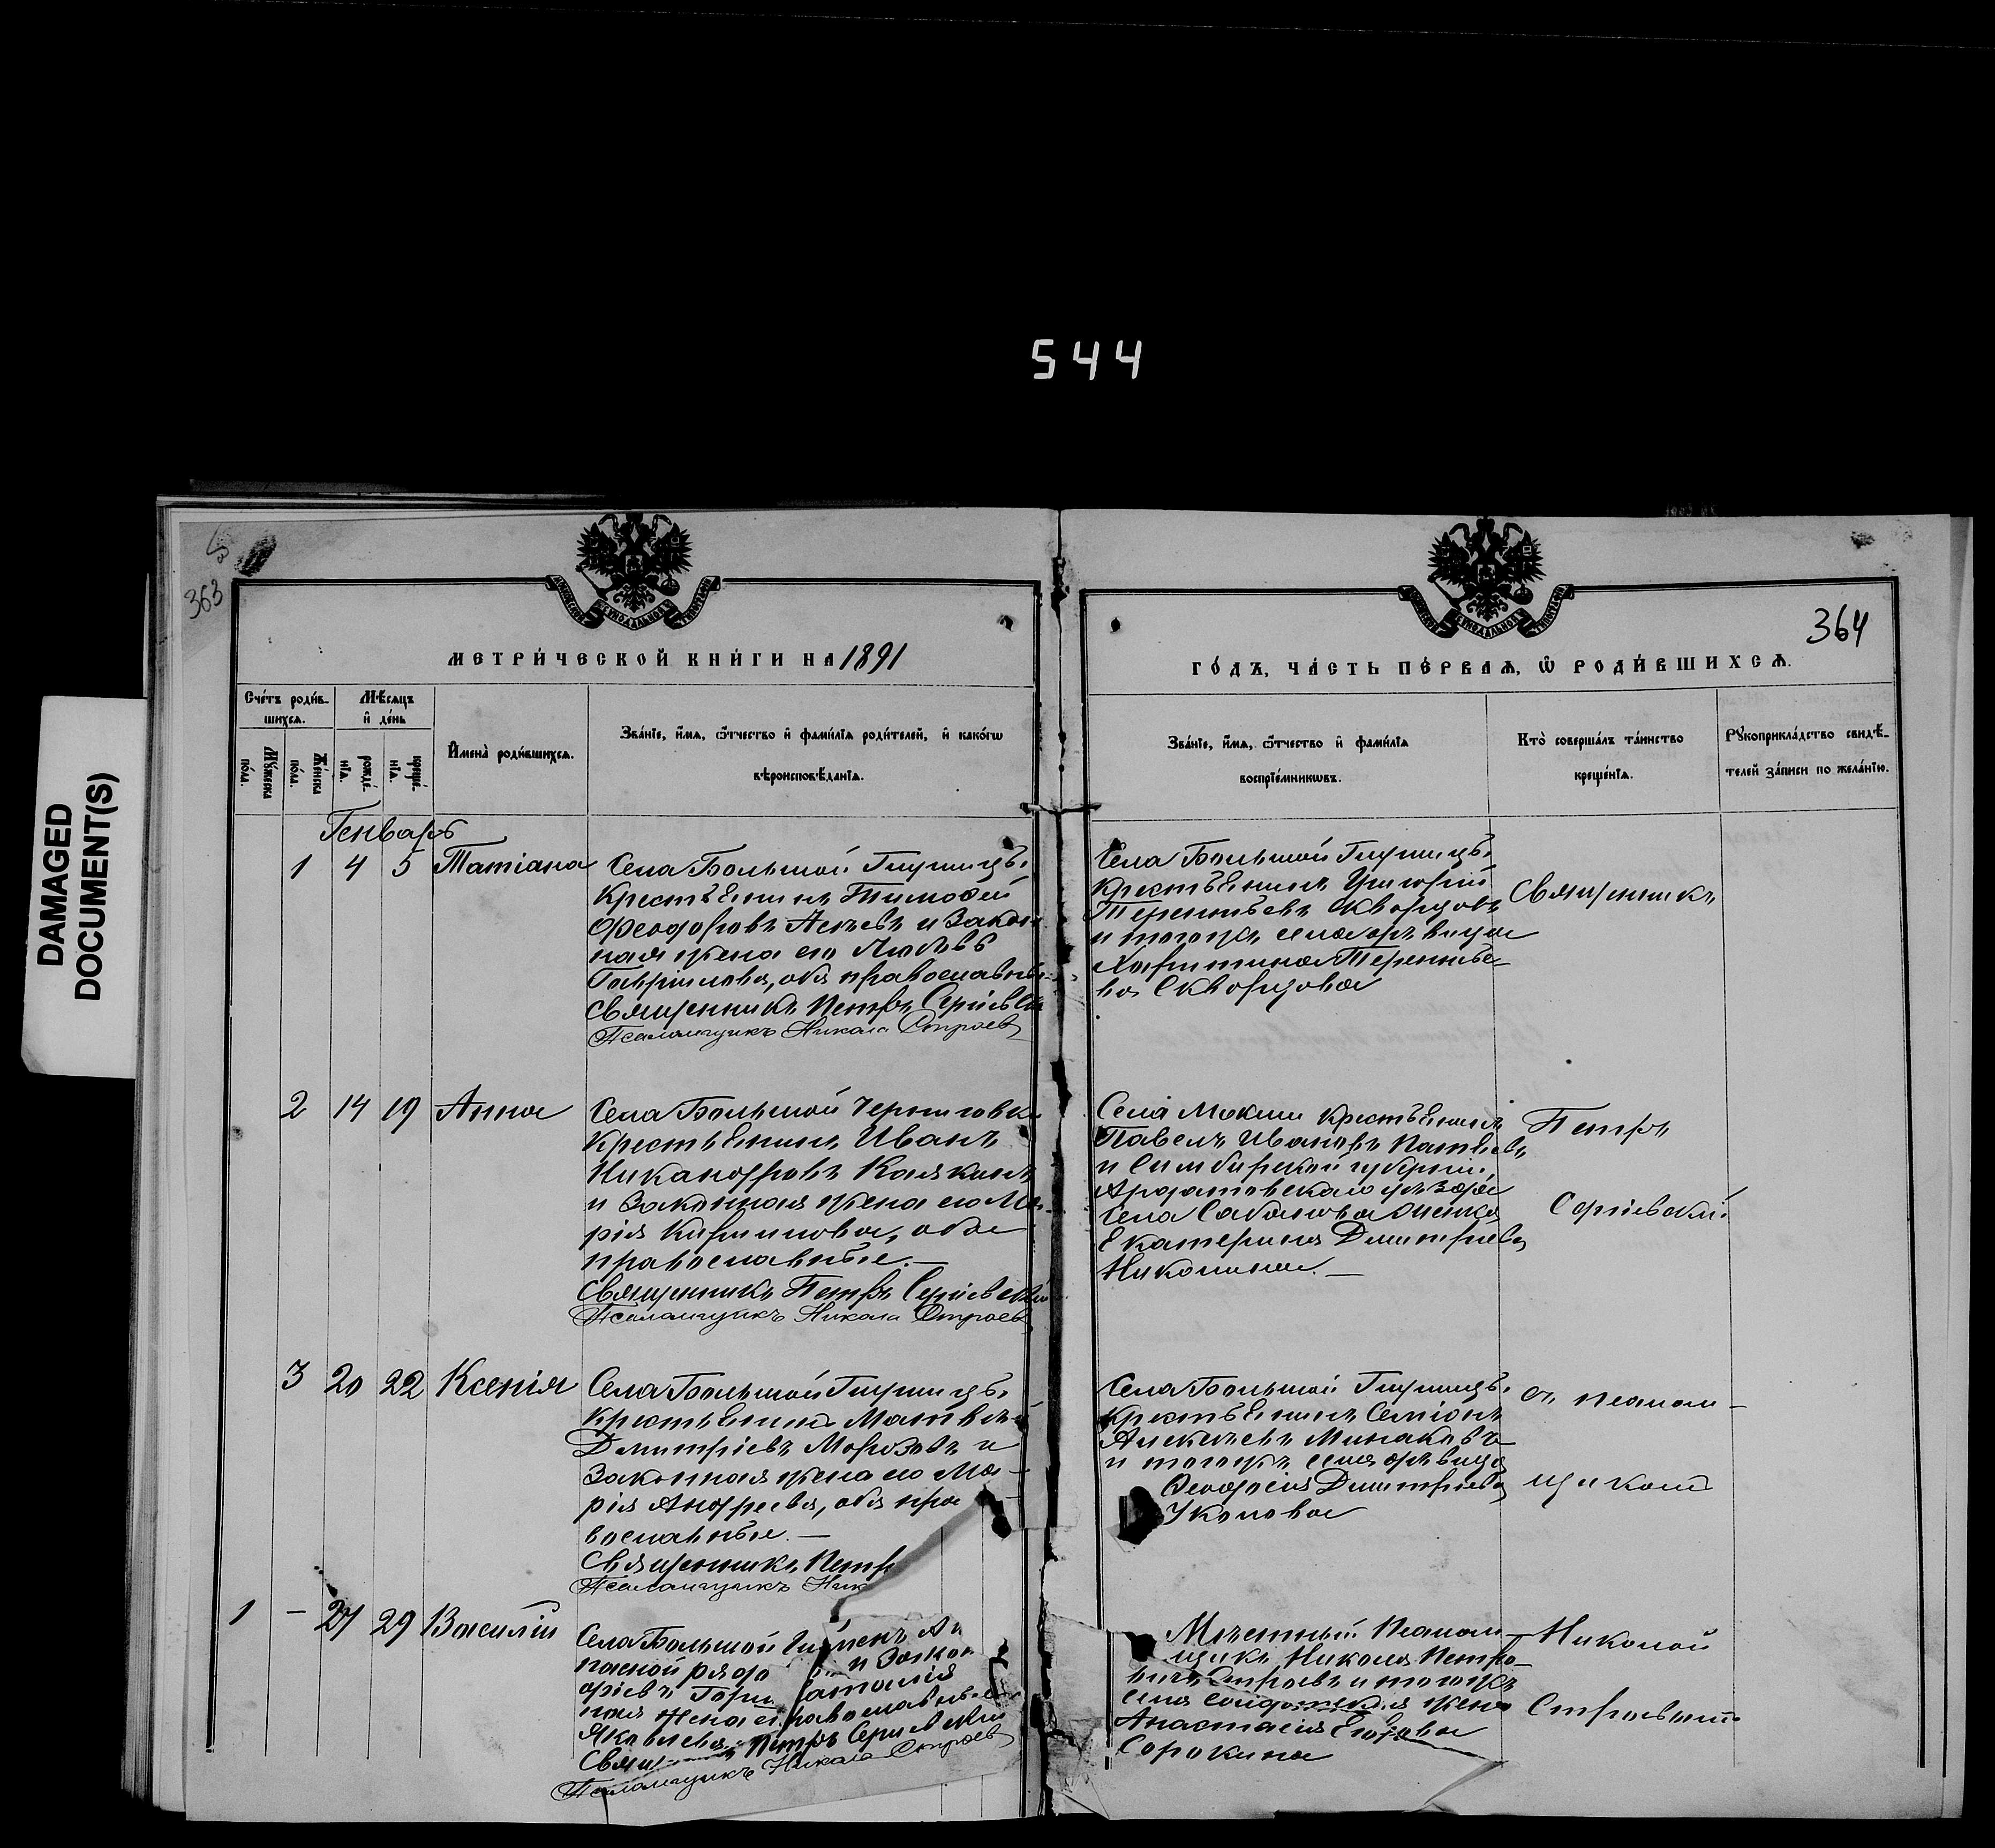 544
DAMAGED
DOCUMENT(S)
5
363
МЕТРИ́ЧЕСКОЙ КНИ́ГИ НА 1891
Сче́тъ роди́в-
шихсѧ.
Мѣ́сѧцъ
и҆ де́нь
Мꙋ́жеска
по́ла.
Же́нска
по́ла.
рожде́-
нїѧ.
креще́-
нїѧ.
И҆мена̀ роди́вшихсѧ.
Зва́нїе, и҆́мѧ, ѻ҆́тчество и҆ фами́лїѧ роди́телей, и҆ како́гѡ
вѣроисповѣ́данїѧ.
Генварь
1 4 5 Татіана
Села Большой Глушицы
Крестьянинъ Тимофей
Феодоровъ Агѣевъ и закон
ная жена его Любовь
Гавріилова, оба православные
Священникъ Петръ Сергіевскій
Псаломщикъ Никола Строев
2 14 19 Анна
Села Большой Черниговки
Крестьянинъ Иванъ
Никаноровъ Каляканъ
и законная жена его Ма-
рія Кириллова, оба
православные. —
Священникъ Петръ Сергіевскій
Псаломщикъ Никола Строев
3 20 22 Ксенія
Села Большой Глушицы
Крестьянинъ Матвѣй
Дмитріевъ Морозовъ и
законная жена его Ма-
рія Андреева, оба пра
вославные. —
Священникъ Петр
Псаломщикъ Ник
1 — 27 29 Василій
Села Большой
и закон
аталія
ная жена е православные
Яковлева
Свящ Петръ Сергіевскій
Псаломщикъ Никола Строев
364
ГО́ДЪ, ЧА́СТЬ ПЕ́РВАѦ, Ѽ РОДИ́ВШИХСѦ.
Зва́нїе, и҆́мѧ, ѻ҆́тчество и҆ фами́лїѧ
воспрїе́мникѡвъ.
Кто̀ соверша́лъ та́инство
креще́нїѧ.
Рꙋкоприкла́дство свидѣ́-
телей за́писи по жела́нїю.
Села Большой Глушицы
Крестьянинъ Григорій
Терентьевъ Скворцовъ
и тогоже села дѣвица
Харитина Терентье-
ва Скворцова
Священникъ
Села Мокши Крестьянинъ
Павелъ Ивановъ
и Симбирской губерніи,
Ардатовскаго уѣзда
села
Екатерина Дмитріева
Николина. —
Петръ
Сергіевскій
Села Большой Глушицы
Крестьянинъ Семіонъ
Алексѣевъ Минаковъ
и тогоже села дѣвица
Феодосія Дмитріева
Уколова
съ псалом-
щикомъ
Мѣстный Псалом-
щикъ Никола Петро-
вичъ Строевъ и тогоже
села солдатская жена
Анастасія Егорова
Сорокина
Николой
Строевымъ